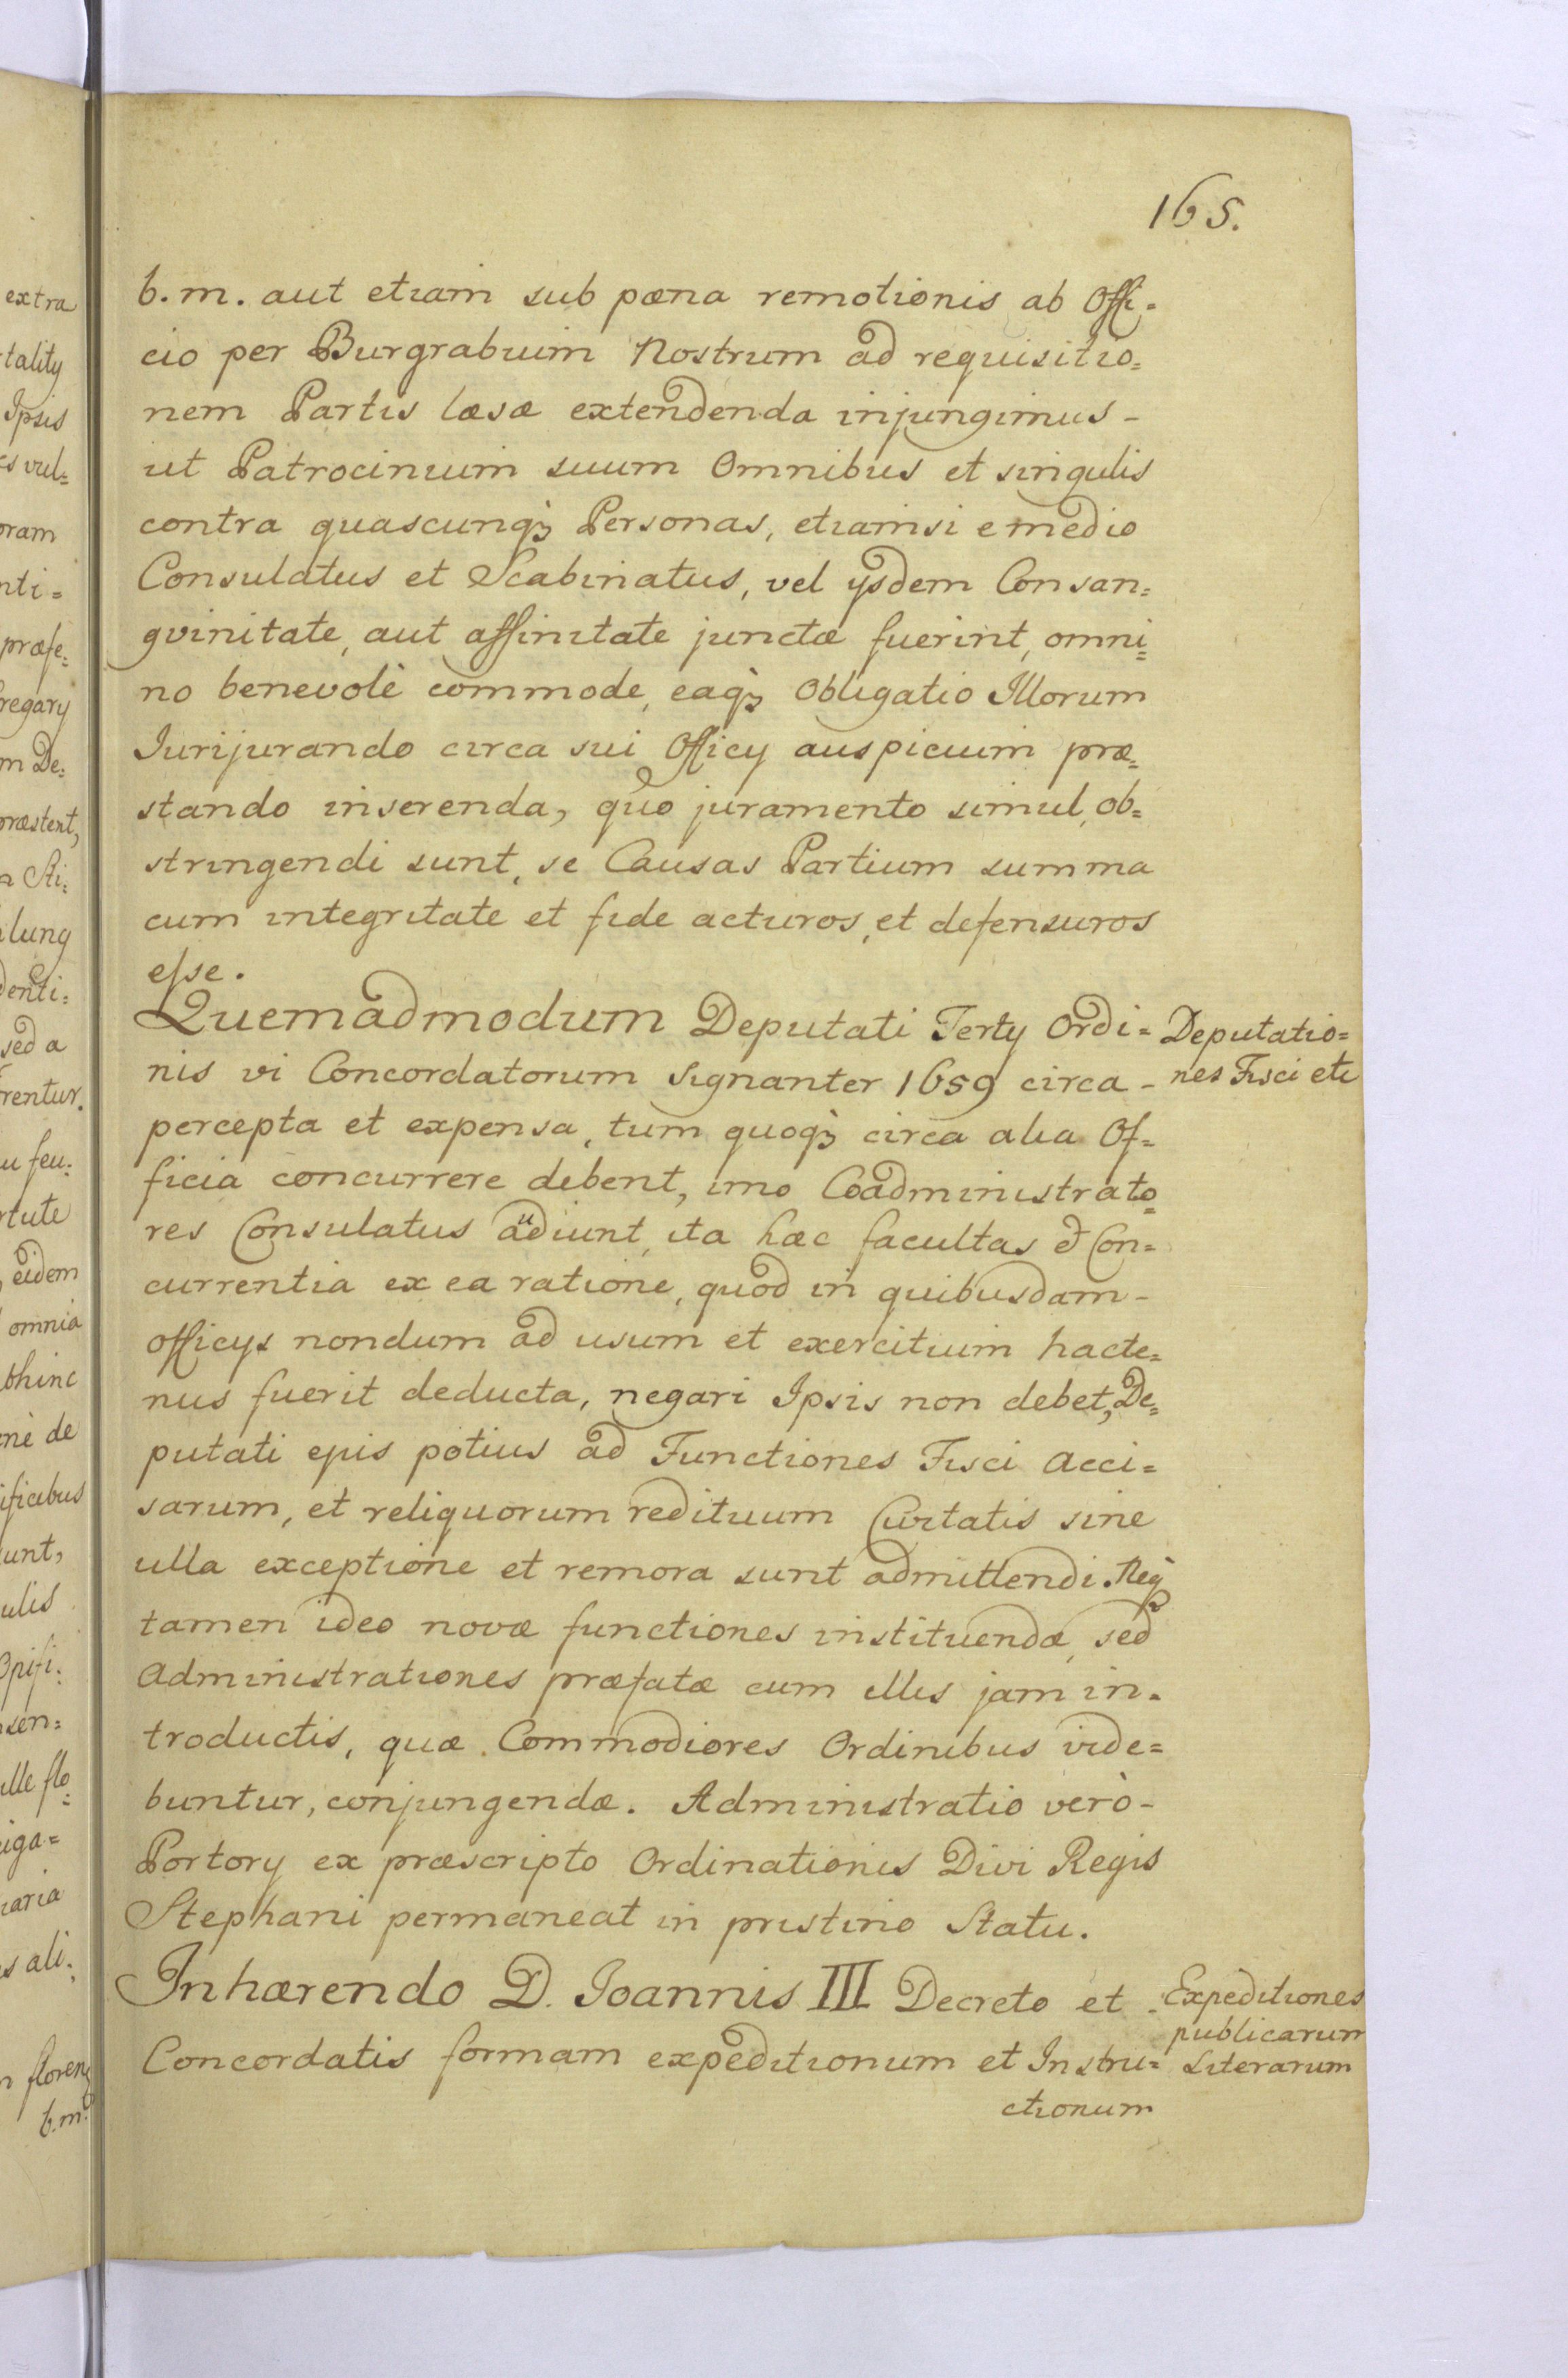 165.
b. m. aut etiam sub pœna remotionis ab Offi=
cio per Burgrabium Nostrum ad requisitio=
nem Partis læsæ extendenda injungimus -
ut Patrocinium suum Omnibus et singulis
contra quascunqꝫ Personas, etiamsi e medio
Consulatus et Scabinatus, vel ijsdem Consan=
gvinitate, aut affinitate junctæ fuerint, omni=
no benevolè commode, eaqꝫ Obligatio Illorum
Iurijurando circa sui Officij auspicium præ=
stando inserenda, quo juramento simul, ob=
stringendi sunt, se Causas Partium summa
cum integritate et fide acturos, et defensuros
esse.
Quemadmodum Deputati Tertij Ordi=
Deputatio=
nes Fisci etc
nis vi Concordatorum signanter 1659 circa -
percepta et expensa, tum quoqꝫ circa alia Of=
ficia concurrere debent, imo Coadministrato=
res Consulatus audiunt, ita hæc facultas et Con=
currentia ex ea ratione, quod in quibusdam -
officijs nondum ad usum et exercitium hacte=
nus fuerit deducta, negari Ipsis non debet, De=
putati ejus potius ad Functiones Fisci Acci=
sarum, et reliquorum redituum Civitatis sine
ulla exceptione et remora sunt admittendi. Neqꝫ
tamen ideo novæ functiones instituendæ, sed
Administrationes præfatæ cum illis jam in=
troductis, quæ Commodiores Ordinibus vide=
buntur, conjungendæ. Administratio verò -
Portorij ex præscripto Ordinationis Divi Regis
Stephani permaneat in pristino Statu.
Inhærendo D. Ioannis III Decreto et
Expeditiones
publicarum
Literarum
Concordatis formam expeditionum et Instru=
ctionum
extra
tality
Ipsis
vul=
oram
nti=
præfe=
regarij
m De=
præstent,
lung
denti=
sed a
rentur.
u feu=
rtute
eidem
omnia
bhinc
nè de
ificibus
iunt,
ulis
Opifi=
sen=
ille flo=
iga=
iaria
s ali=
floren
b. m.